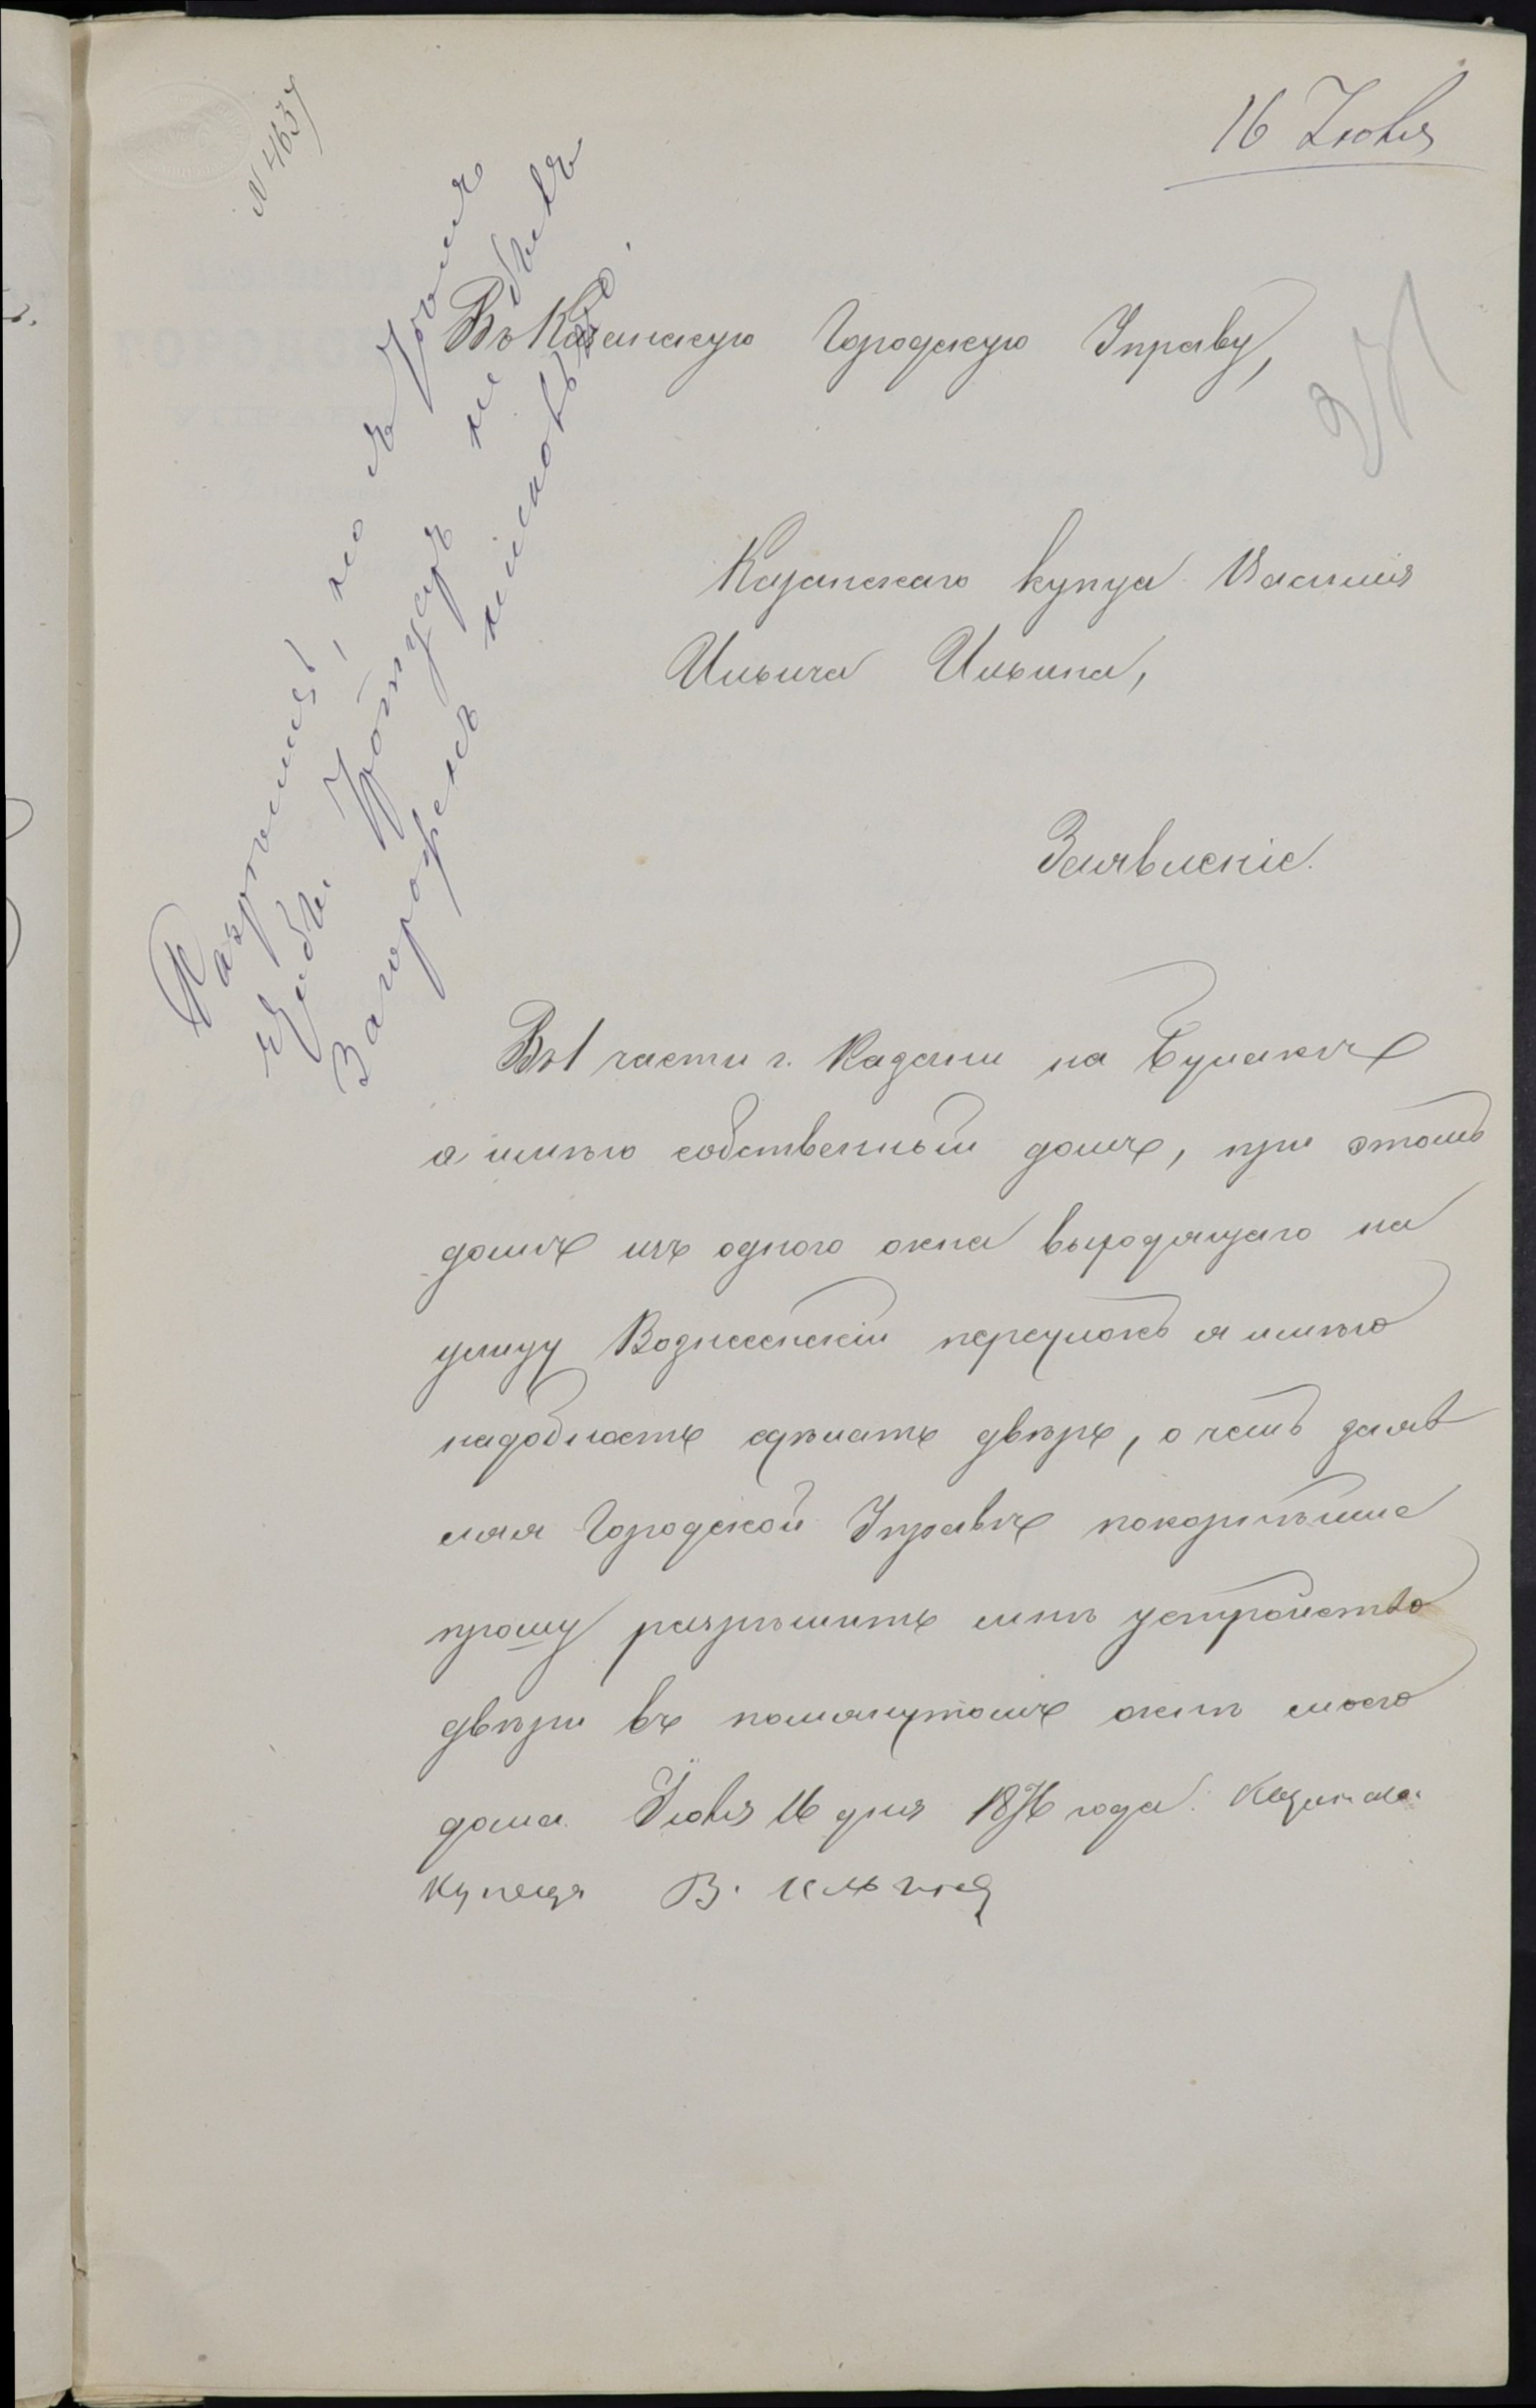 16 Июня
N 4637
Разрешить, но с тѣмъ
чтобы Тротуаръ не былъ
загороженъ
Въ Казанскую Городскую Управу,
Казанскаго купца Василія
Ильича Ильина,
Заявленіе.
Въ 1 части г. Казани на Булакѣ
я имѣю собственный домъ, при этомъ
домѣ изъ одного окна выходящаго на
улицу Вознесенскій переулокъ я имѣю
надобность сдѣлать дверь, о чемъ заяв
ляя Городской Управѣ покорнѣйше
прошу разрѣшить мнѣ устройство
двѣри въ помянутомъ окнѣ моего
дома. Іюня 16 дня 1876 года. Казанска
купецъ В. Ильинъ